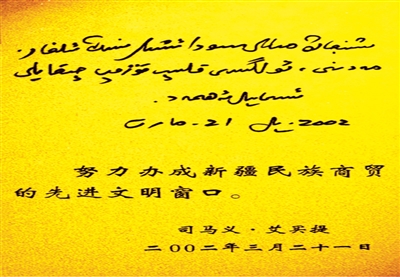 شىنجاڭ مىللىي سودا
مەدەنىي، ئۈلگىسى قىلىپ چىقايلى
ئىسمايىل ئەھمەد.
2002-يىل 21-مارت
努力办成新疆民族商贸
的先进文明窗口。
司马义·艾买提
二〇〇二年三月二十一日